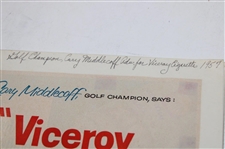 Golf Champion, Cary Middlecoff Ad for Viceroy Cigarettes, 1959
Cary Middlecoff, GOLF CHAMPION, SAYS:
"Viceroy